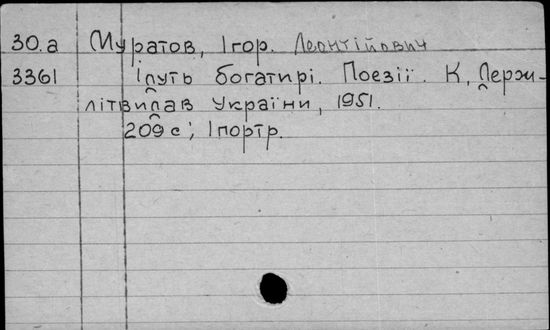 30.а Муратов, Ігор. Леонтійович
3361 Ідуть богатирі. Поезії. К, Держ-
літвидав України, 1951.
209 с; 1портр.